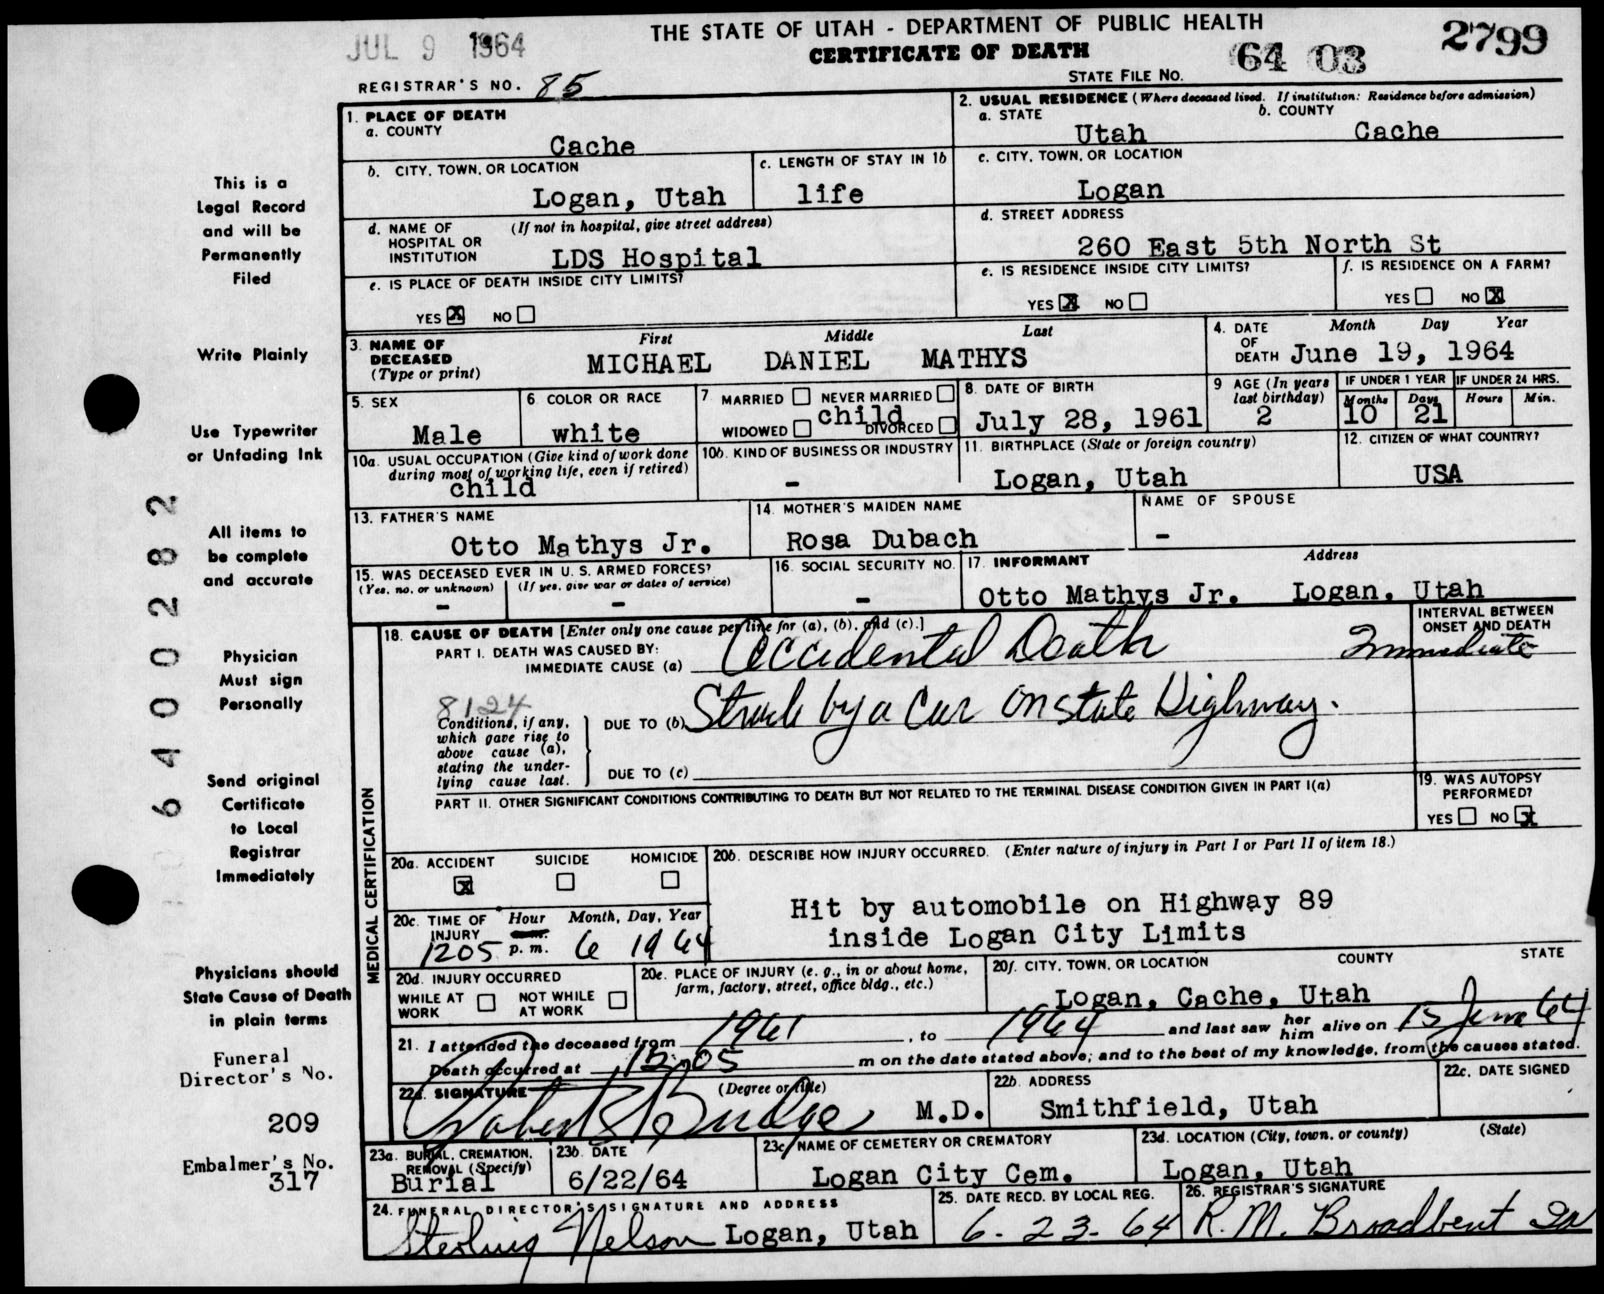 THE STATE OF UTAH - DEPARTMENT OF PUBLIC HEALTH
JUL 9 1964
CERTIFICATE OF DEATH
64 03 2799
STATE FILE NO.
REGISTRAR'S NO. 85
1. PLACE OF DEATH
a. COUNTY
Cache
2. USUAL RESIDENCE (Where deceased lived. If institution: Residence before admission)
a. STATE b. COUNTY
Utah Cache
b. CITY, TOWN, OR LOCATION
Logan, Utah
c. LENGTH OF STAY IN 1b
life
c. CITY, TOWN, OR LOCATION
Logan
d. NAME OF HOSPITAL OR INSTITUTION (If not in hospital, give street address)
LDS Hospital
d. STREET ADDRESS
260 East 5th North St
e. IS PLACE OF DEATH INSIDE CITY LIMITS?
YES X NO
e. IS RESIDENCE INSIDE CITY LIMITS?
YES X NO
f. IS RESIDENCE ON A FARM?
YES NO X
3. NAME OF DECEASED (Type or print)
First Middle Last
MICHAEL DANIEL MATHYS
4. DATE OF DEATH
Month Day Year
June 19, 1964
5. SEX
Male
6 COLOR OR RACE
white
7 MARRIED NEVER MARRIED
WIDOWED DIVORCED
child
8. DATE OF BIRTH
July 28, 1961
9 AGE (In years last birthday)
2
IF UNDER 1 YEAR
Months Days
10 21
IF UNDER 24 HRS.
Hours Min.
10a. USUAL OCCUPATION (Give kind of work done during most of working life, even if retired)
child
10b. KIND OF BUSINESS OR INDUSTRY
-
11. BIRTHPLACE (State or foreign country)
Logan, Utah
12. CITIZEN OF WHAT COUNTRY?
USA
13. FATHER'S NAME
Otto Mathys Jr.
14. MOTHER'S MAIDEN NAME
Rosa Dubach
NAME OF SPOUSE
-
15. WAS DECEASED EVER IN U. S. ARMED FORCES?
(Yes, no, or unknown) (If yes, give war or dates of service)
- -
16. SOCIAL SECURITY NO.
-
17. INFORMANT Address
Otto Mathys Jr. Logan, Utah
MEDICAL CERTIFICATION
18. CAUSE OF DEATH [Enter only one cause per line for (a), (b), and (c).]
PART I. DEATH WAS CAUSED BY:
IMMEDIATE CAUSE (a) Accidental Death
INTERVAL BETWEEN ONSET AND DEATH
Immediate
8124
Conditions, if any, which gave rise to above cause (a), stating the underlying cause last.
DUE TO (b) Struck by a Car on state Highway.
DUE TO (c)
PART II. OTHER SIGNIFICANT CONDITIONS CONTRIBUTING TO DEATH BUT NOT RELATED TO THE TERMINAL DISEASE CONDITION GIVEN IN PART I(a)
19. WAS AUTOPSY PERFORMED?
YES NO X
20a. ACCIDENT SUICIDE HOMICIDE
X
20b. DESCRIBE HOW INJURY OCCURRED. (Enter nature of injury in Part I or Part II of item 18.)
Hit by automobile on Highway 89
inside Logan City Limits
20c. TIME OF INJURY
Hour Month, Day, Year
1205 p. m. 6 19 64
20d. INJURY OCCURRED
WHILE AT WORK NOT WHILE AT WORK
20e. PLACE OF INJURY (e. g., in or about home, farm, factory, street, office bldg., etc.)
20f. CITY, TOWN, OR LOCATION COUNTY STATE
Logan, Cache, Utah
21. I attended the deceased from 1961, to 1964 and last saw her him alive on 15 June 64
Death occurred at 12:05 m on the date stated above; and to the best of my knowledge, from the causes stated.
22a. SIGNATURE (Degree or title)
Robert S Budge M.D.
22b. ADDRESS
Smithfield, Utah
22c. DATE SIGNED
23a. BURIAL, CREMATION, REMOVAL (Specify)
Burial
23b. DATE
6/22/64
23c. NAME OF CEMETERY OR CREMATORY
Logan City Cem.
23d. LOCATION (City, town, or county) (State)
Logan, Utah
24. FUNERAL DIRECTOR'S SIGNATURE AND ADDRESS
Sterling Nelson Logan, Utah
25. DATE RECD. BY LOCAL REG.
6-23-64
26. REGISTRAR'S SIGNATURE
R. M. Broadbent
This is a
Legal Record
and will be
Permanently
Filed
Write Plainly
Use Typewriter
or Unfading Ink
All items to
be complete
and accurate
Physician
Must sign
Personally
Send original
Certificate
to Local
Registrar
Immediately
Physicians should
State Cause of Death
in plain terms
Funeral
Director's No.
209
Embalmer's No.
317
64000282